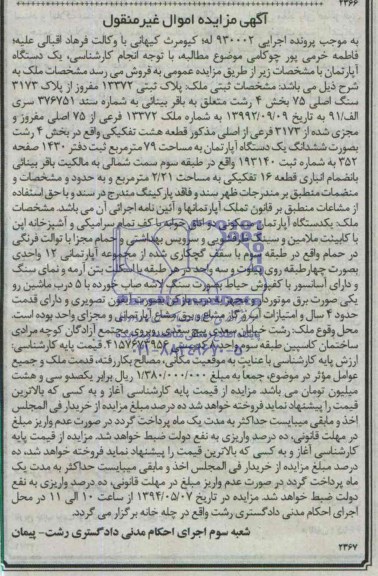 ۲۳۶۶
آگهی مزایده اموال غیرمنقول
به موجب پرونده اجرایی ۹۳۰۰۰۲ له؛ کیومرث کیهانی با وکالت فرهاد اقبالی علیه؛
فاطمه خرمی پور چوکامی موضوع مطالبه، با توجه انجام کارشناسی، یک دستگاه
آپارتمان با مشخصات زیر از طریق مزایده عمومی به فروش می رسد مشخصات ملک به
شرح ذیل می باشد: مشخصات ثبتی ملک: پلاک ثبتی ۱۳۳۷۲ مفروز از پلاک ۳۱۷۳
سنگ اصلی ۷۵ بخش ۴ رشت متعلق به باقر بینائی به شماره سند ۳۷۶۷۵۱ سری
الف/۹۱ به تاریخ ۱۳۹۹۲/۰۹/۰۹ به شماره ملک ۱۳۳۷۲ فرعی از ۷۵ اصلی مفروز و
مجزی شده از ۳۱۷۳ فرعی از اصلی مذکور قطعه هشت تفکیکی واقع در بخش ۴ رشت
بصورت ششدانگ یک دستگاه آپارتمان به مساحت ۷۹ مترمربع ثبت دفتر ۱۴۳۰ صفحه
۳۵۲ به شماره ثبت ۱۹۳۱۴۰ واقع در طبقه سوم سمت شمالی به مالکیت باقر بینائی
بانضمام انباری قطعه ۱۶ تفکیکی به مساحت ۲/۲۱ مترمربع و به حدود و مشخصات و
منضمات منطبق بر مندرجات ظهر سند و فاقد پارکینگ مندرج در سند و با حق استفاده
از مشاعات منطبق بر قانون تملک آپارتمانها و آئین نامه اجرائی آن می باشد. مشخصات
ملک: یکدستگاه آپارتمان مسکونی دو اتاق خوابه با کف تمام سرامیکی و آشپزخانه اپن
با کابینت ملامین و سینک و سرویس بهداشتی و حمام مجزا با توالت فرنگی
در حمام واقع در طبقه سوم با سقف گچکاری شده از مجموعه آپارتمانی ۱۲ واحدی
بصورت چهار طبقه روی پیلوت و سه واحد در هر طبقه با اسکلت بتن آرمه و نمای سنگ
و دارای آسانسور با کفپوش حیاط بصورت سنگ
یکی صورت برق موتوری و آیفون تصویری و دارای قدمت
حدود ۴ سال و امتیازات آب و گاز مشاع و برق مشاع آپارتمانی و مجزای واحد بوده است.
محل وقوع ملک: رشت خیابان سعدی پیچ سعدی روبروی مجتمع آزادگان کوچه مرادی
ساختمان کاسپین طبقه سوم واحد ۸ کدپستی ۴۱۵۷۶۷۳۹۵۶. قیمت پایه کارشناسی:
ارزش پایه کارشناسی با عنایت به موقعیت مکانی، مصالح بکاررفته، قدمت ملک و جمیع
عوامل مؤثر در موضوع، جمعاً به مبلغ ۱/۳۸۰/۰۰۰/۰۰۰ ریال برابر یکصدو سی و هشت
میلیون تومان می باشد. مزایده از قیمت پایه کارشناسی آغاز و به کسی که بالاترین
قیمت را پیشنهاد نماید فروخته خواهد شد ده درصد مبلغ مزایده از خریدار فی المجلس
اخذ و مابقی میبایست حداکثر به مدت یک ماه پرداخت گردد در صورت عدم واریز مبلغ
در مهلت قانونی، ده درصد واریزی به نفع دولت ضبط خواهد شد. مزایده از قیمت پایه
کارشناسی آغاز و به کسی که بالاترین قیمت را پیشنهاد نماید فروخته خواهد شد، ده
درصد مبلغ مزایده از خریدار فی المجلس اخذ و مابقی میبایست حداکثر به مدت یک
ماه پرداخت گردد در صورت عدم واریز مبلغ در مهلت قانونی، ده درصد واریزی به نفع
دولت ضبط خواهد شد. مزایده در تاریخ ۱۳۹۴/۰۵/۰۷ از ساعت ۱۰ الی ۱۱ در محل
اجرای احکام مدنی دادگستری رشت واقع در چله خانه برگزار می گردد.
شعبه سوم اجرای احکام مدنی دادگستری رشت- پیمان
۲۳۶۷